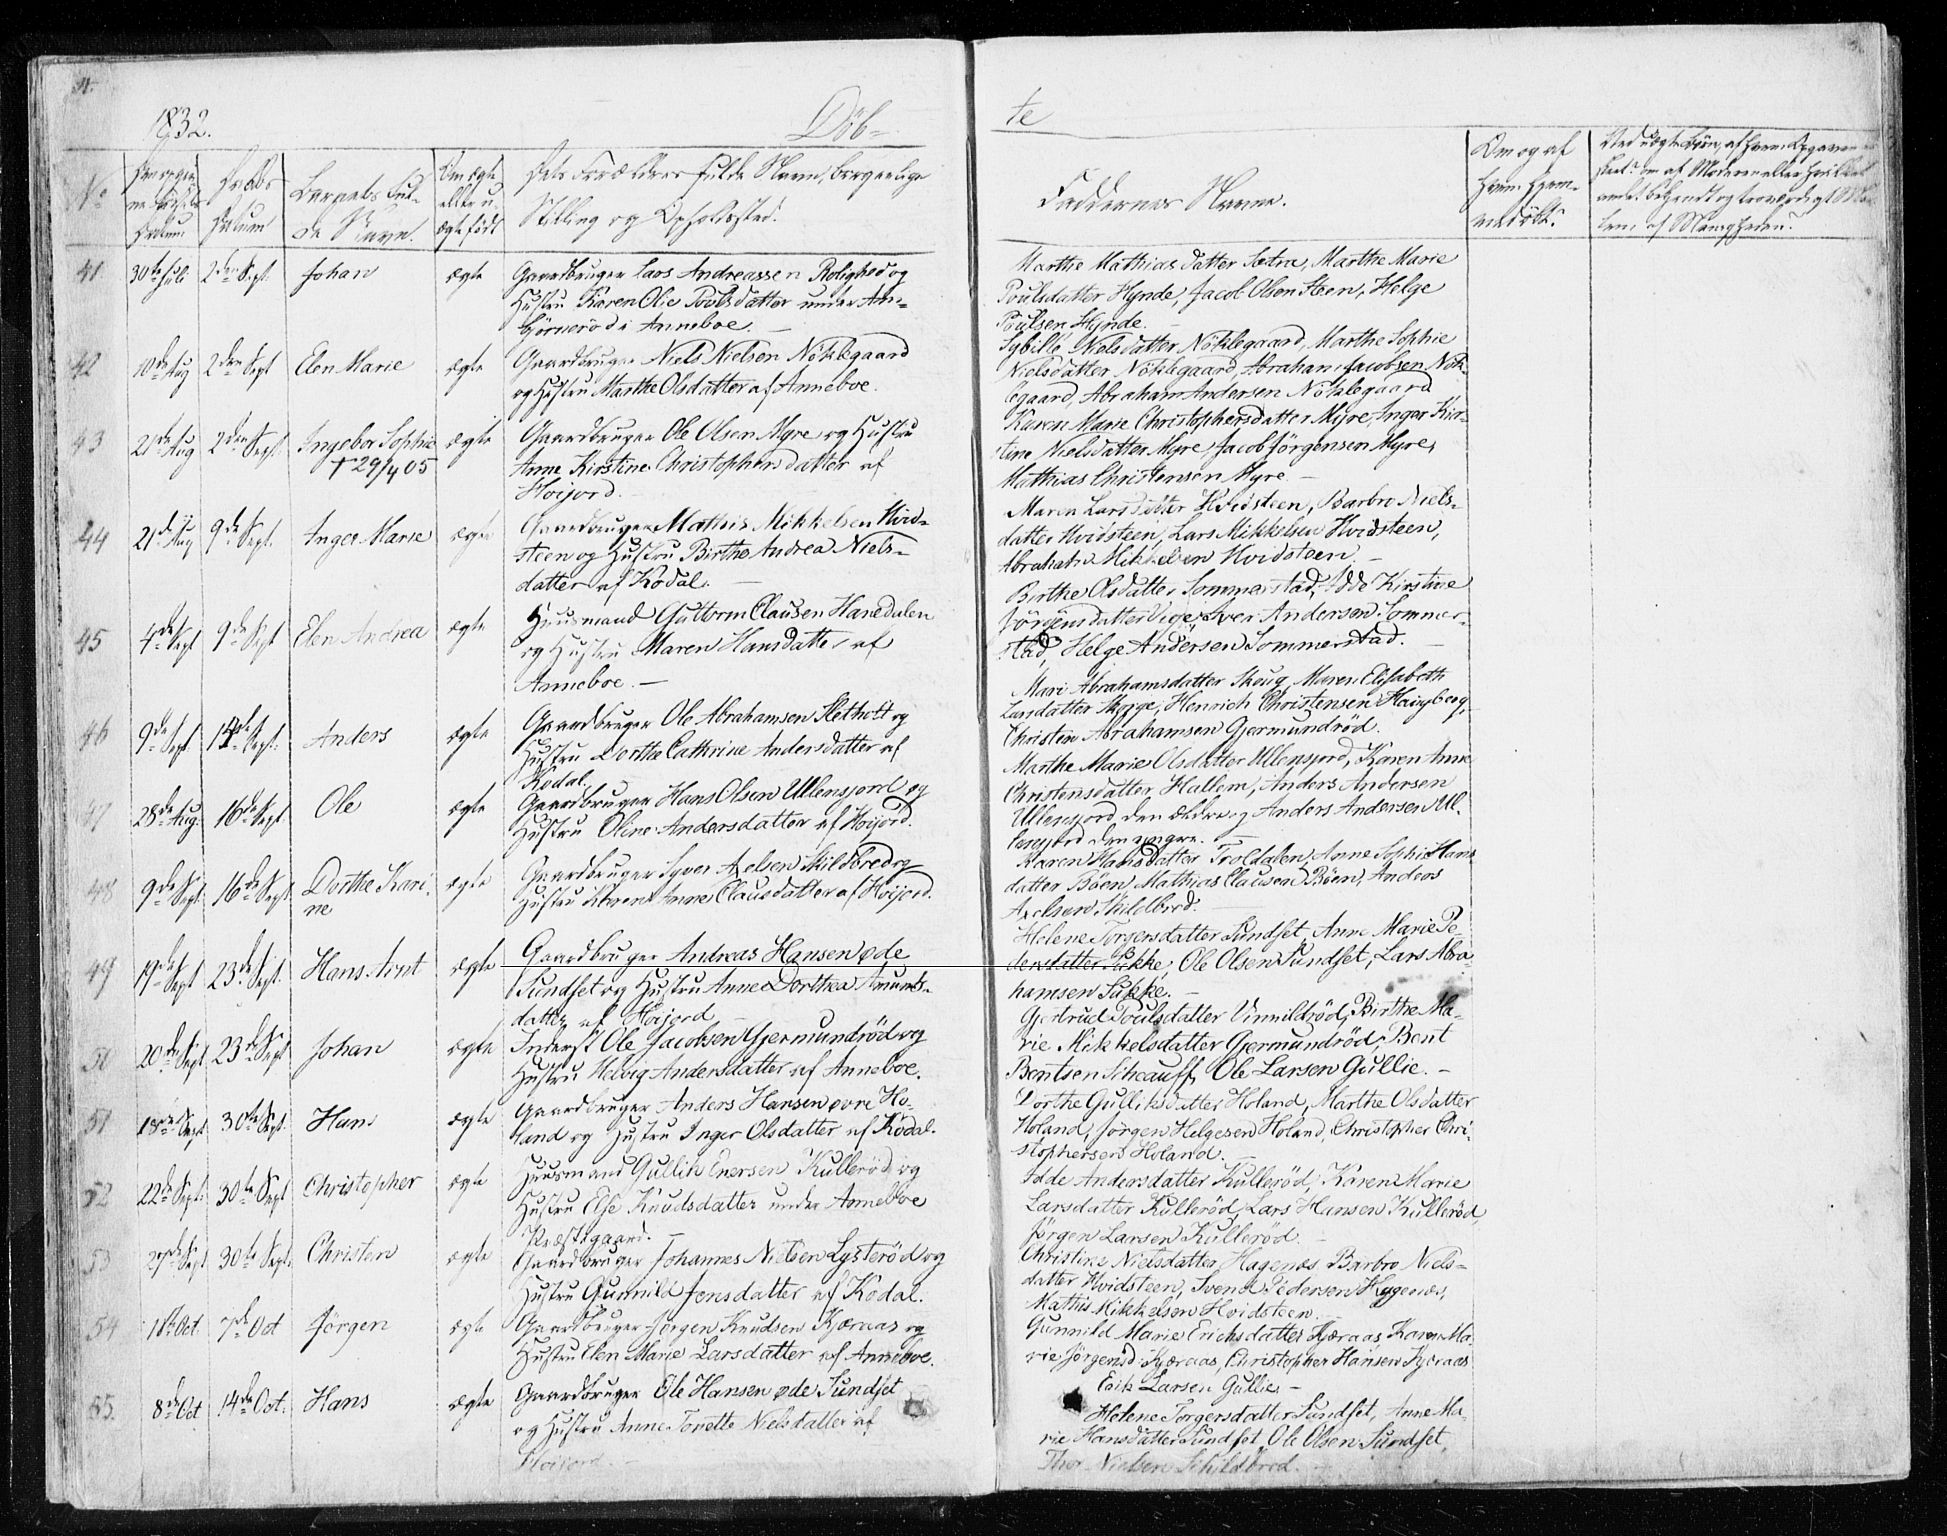 1832. Döb-
te
No
Barnets ful-
de Navn.
Dets Forældres fulde Navn, borgerlige
Stilling og Opholdssted.
Faddernes Navne.
41 30te Juli 2den Sept. Johan ægte Gaardbruger Andreassen Rolighed og
Hustru Karen Olie Poulsdatter under
i Anneboe.
Marthe Mathiasdatter Sætra, Marthe Marie
Poulsdatter Hynde, Jacob Olsen Steen, Helge
Poulsen Hynde.
42 10de Aug 2den Sept Elen Marie ægte Gaardbruger Niels Nielsen Nöklegaard
og Hustru Marthe Olsdatter af Anneboe.
Sybille Nielsdatter Nöklegaard, Marthe Sophie
Nielsdatter Nöklegaard, Abraham Jacobsen Nök-
legaard, Abraham Andersen Nöklegaard
43 21de Aug 2den Sept Ingebor Sophie ægte Gaardbruger Ole Olsen Myre og Hustru
† 29/4 05 Anne Kirstine Christophersdatter af
Höijord.
Karen Marie Christophersdatter Myre, Inger Kir-
stine Nielsdatter Myre, Jacob Jörgensen Myre,
Mathias Christensen Myre.
44 21de Aug 9de Sept. Inger Marie ægte Gaardbruger Mathis Mikkelsen Hvid-
steen og Hustru Birthe Andrea Niels-
datter af Kodal.
Maren Larsdatter Hvidsteen, Barbro Niels-
datter Hvidsteen, Lars Mikkelsen Hvidsteen,
Abraham Mikkelsen Hvidsteen
45 4de Sept 9de Sept Elen Andrea ægte Huusmand Guttorm Clausen Hanedalen
og Hustru Maren Hansdatter af
Anneboe.
Birthe Olsdatter Sommerstad, Idde Kirstine
Jörgensdatter Iver Andersen Sommer-
stad, Helge Andersen Sommerstad.
46 9de Sept. 14de Sept. Anders ægte Gaardbruger Ole Abrahamsen Sletholt og
Hustru Dorthe Cathrine Andersdatter af
Kodal.
Mari Abrahamsdatter Skoug, Maren Elisabeth
Larsdatter Henrich Christensen Haugberg,
Christen Abrahamsen Gjermundröd.
47 28de Aug. 16de Sept. Ole ægte Gaardbruger Hans Olsen Ullensjord og
Hustru Oline Andersdatter af Höijord.
Marthe Marie Olsdatter Ullensjord, Karen Anne
Christensdatter Hallem, Anders Andersen
Ullensjord den ældre og Anders Andersen Ul-
lensjord den yngre.
48 9de Sept. 16de Sept. Dorthe Kari- ægte Gaardbruger Syver Axelsen Skildbred og
ne Hustru Karen Anne Clausdatter af Höijord.
Maren Hansdatter Troldalen, Anne Sophie Hans
datter Böen, Mathias Clausen Böen, Anders
Axelsen Skildbred.
49 19de Sept 23de Sept. Hans Arnt ægte Gaardbruger Andreas Hansen øde
Sundset og Hustru Anne Dorthea Amunds-
datter af Höijord
Helene Torgersdatter Sundset, Anne Marie Pe-
dersdatter Sukke, Ole Olsen Sundset, Lars Abra-
hamsen Sukke.
50 20de Sept 23de Sept Johan ægte Inderst Ole Jacobsen Gjermundröd og
Hustru Helvig Andersdatter af Anneboe.
Gjertrud Poulsdatter Vinnildröd, Birthe Ma-
rie Mikkelsdatter Gjermundröd, Bent
Bentsen Scheauff, Ole Larsen Gullie.
51 18de Sept. 30te Sept. Hans ægte Gaardbruger Anders Hansen øvre Ho-
land og Hustru Inger Olsdatter af Kodal.
Dorthe Gulliksdatter Holand, Marthe Olsdatter
Holand, Jörgen Helgesen Holand, Christopher Chri-
stophersen Holand.
52 22de Sept. 30te Sept Christopher ægte Huusmand Gullik Enersen Kulleröd og
Hustru Else Knudsdatter under Anneboe
Præstegaard.
Idde Andersdatter Kulleröd, Karen Marie
Larsdatter Kulleröd, Lars Hansen Kulleröd,
Jörgen Larsen Kulleröd.
53 27de Sept 30te Sept. Christen ægte Gaardbruger Johannes Nielsen Lysteröd og
Hustru Gunnild Jensdatter af Kodal.
Christine Nielsdatter Hagenæs, Barbro Niels-
datter Hvidsteen, Svend Pedersen Hagenæs,
Mathis Mikkelsen Hvidsteen.
54 1ste Oct 7de Oct Jörgen ægte Gaardbruger Jörgen Knudsen Kjæraas og
Hustru Elen Marie Larsdatter af Anneboe.
Gunnild Marie Erichsdatter Kjæraas, Karen Ma-
rie Jörgensd. Kjæraas, Christopher Hansen Kjæraas
Erik Larsen Gullie.
55. 8de Oct 14de Oct. Hans ægte Gaardbruger Ole Hansen øde Sundset
og Hustru Anne Tonette Nielsdatter af
Höijord.
Helene Torgersdatter Sundset, Anne Ma-
rie Hansdatter Sundset, Ole Olsen Sundset,
Thor Nielsen Schildbred.